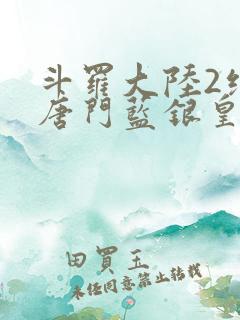 斗羅大陸2絕
唐門藍銀皇
田買玉
未經同意禁止轉載